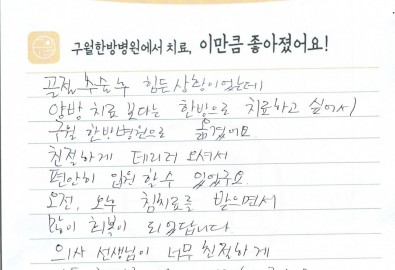 구월한방병원에서 치료, 이만큼 좋아졌어요!
골절 수술 후 힘든 상황이었는데
양방 치료 보다는 한방으로 치료하고 싶어서
구월 한방병원으로 옮겼어요.
친절하게 데리러 오셔서
편안히 입원 할 수 있었구요.
오전, 오후 침치료를 받으면서
많이 회복이 되었답니다
의사 선생님이 너무 친절하게